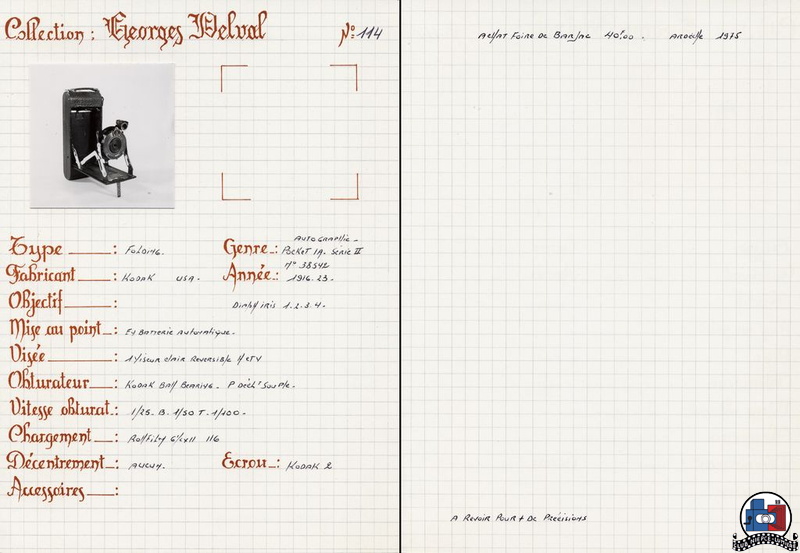 Collection : Georges Delval N° 114
Type : Folding.
Genre : Autographic - Pocket 1A. Série II
n° 38542
Fabricant : Kodak USA.
Année : 1916. 23.
Objectif : Diaph iris 1.2.3.4.
Mise au point : En Batterie Automatique.
Visée : 1 Viseur clair Reversible H et V
Obturateur : Kodak Ball Bearing. P Décl' Souple.
Vitesse obturat. : 1/25. B. 1/50 T. 1/100.
Chargement : Rollfilm 6½x11 116
Décentrement : Aucun.
Ecrou : Kodak 2
Accessoires :
Achat Foire De Barjac 40F00. 1975
A Revoir Pour + De Précisions